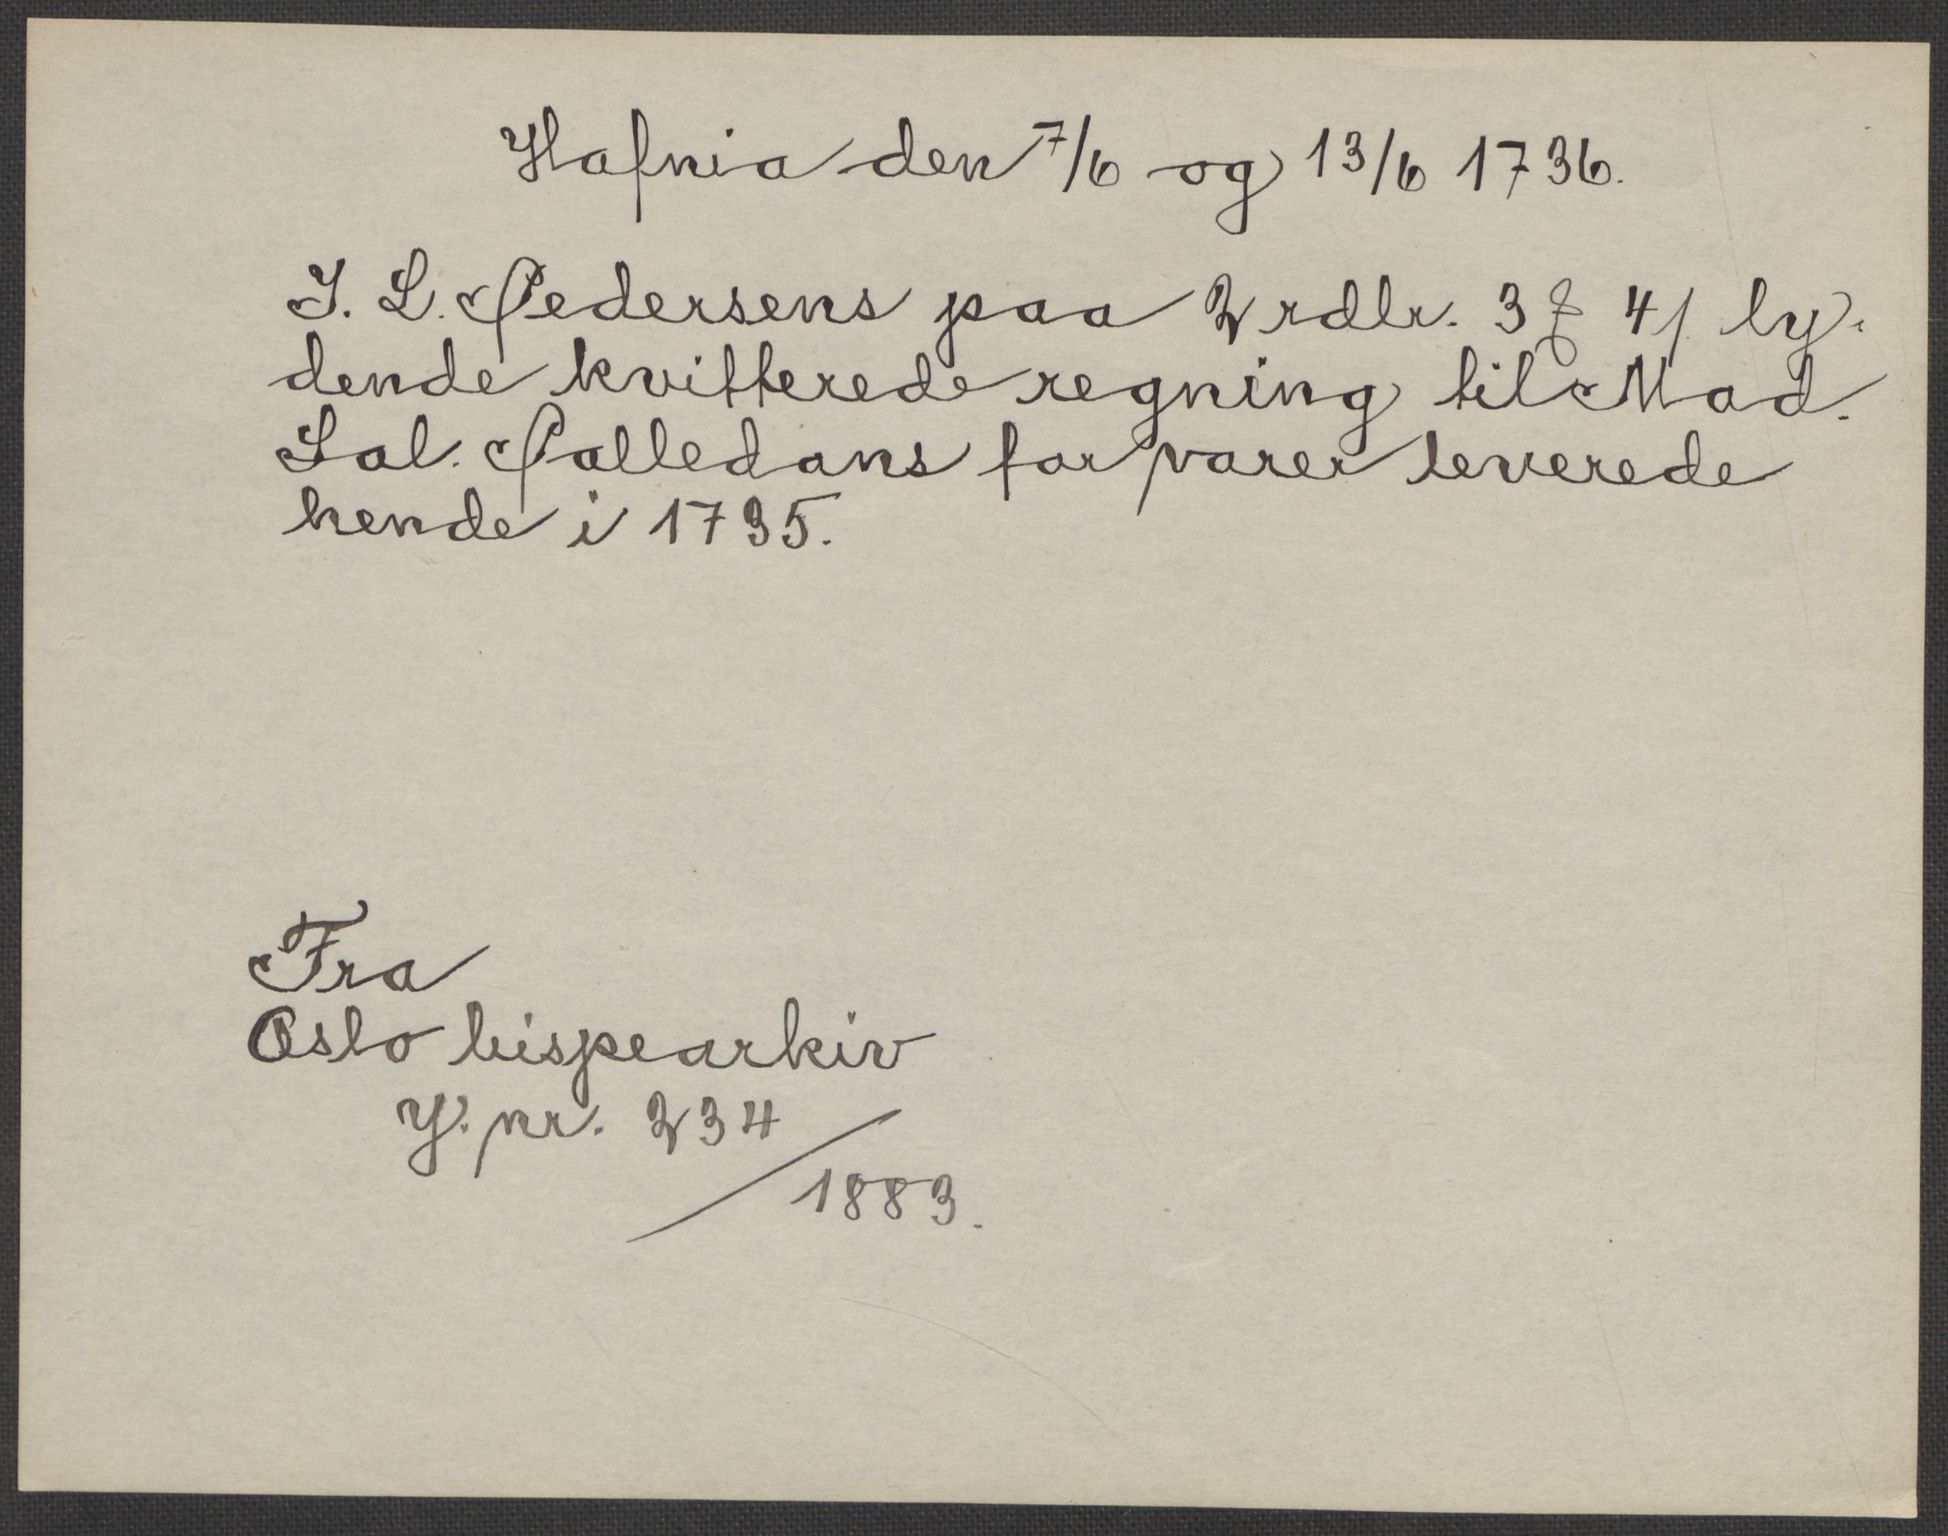 Hafnia den 7/6 og 13/6 1736.
J. L. Pedersens paa 2 rdlr. 3 ꝑ 4 ƒ ly-
dende kvitterede regning til Mad.
Sal. Palledans for varer leverede
hende i 1735.
Fra
Oslo bispearkiv
J. nr. 234
/ 1883.